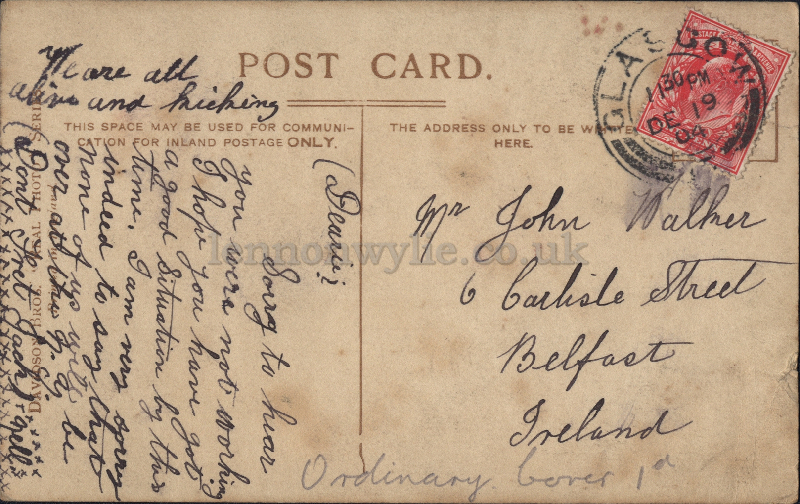 We are all
alive and kicking
POST CARD.
THIS SPACE MAY BE USED FOR COMMUNI-
CATION FOR INLAND POSTAGE ONLY.
THE ADDRESS ONLY TO BE WRITTEN
HERE.
GLASGOW
11 30 PM
DE 19
04
(Dearie)
Sorry to hear
you were not working
I hope you have got
a good situation by this
time. I am very sorry
indeed to say that
none of us will be
over at this N.Y.
(Dont Fret Jack) Nell
DAVIDSON BROS.
SERIES
Mr John Walker
6 Carlisle Street
Belfast
Ireland
Ordinary Cover 1d
lennonwylie.co.uk